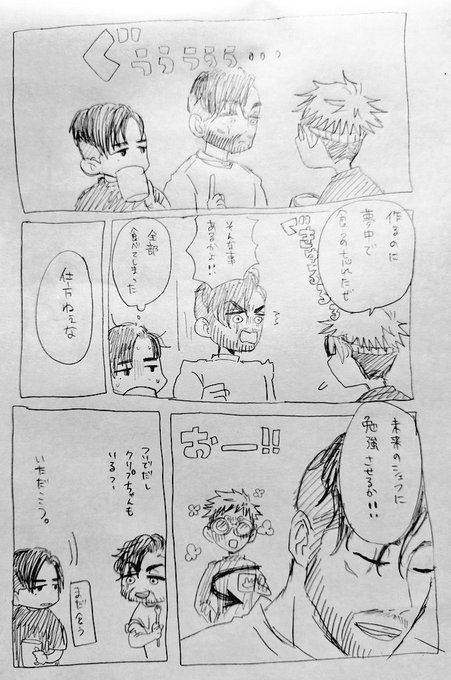 ぐぅぅぅぅぅ…
作るのに
夢中で
食うの忘れたぜ
そんな事
あるかよ!!
全部
食べてしまった
仕方ねぇな
未来のシェフに
勉強させるか!!
おー!!
ついでだし
クリプちゃんも
いるっ
いただこう。
まだ食う